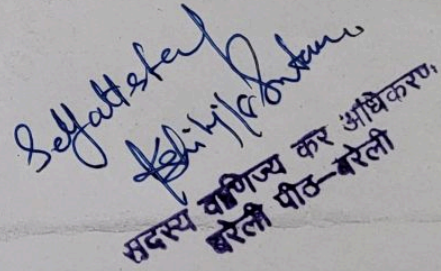 Self attested
Kshitij
सदस्य वाणिज्य कर अधिकरण,
बरेली पीठ-बरेली